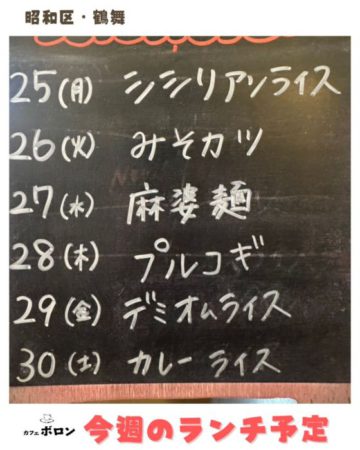 昭和区・鶴舞
25(月) シシリアンライス
26(火) みそカツ
27(水) 麻婆麺
28(木) プルコギ
29(金) デミオムライス
30(土) カレーライス
カフェ ボロン 今週のランチ予定